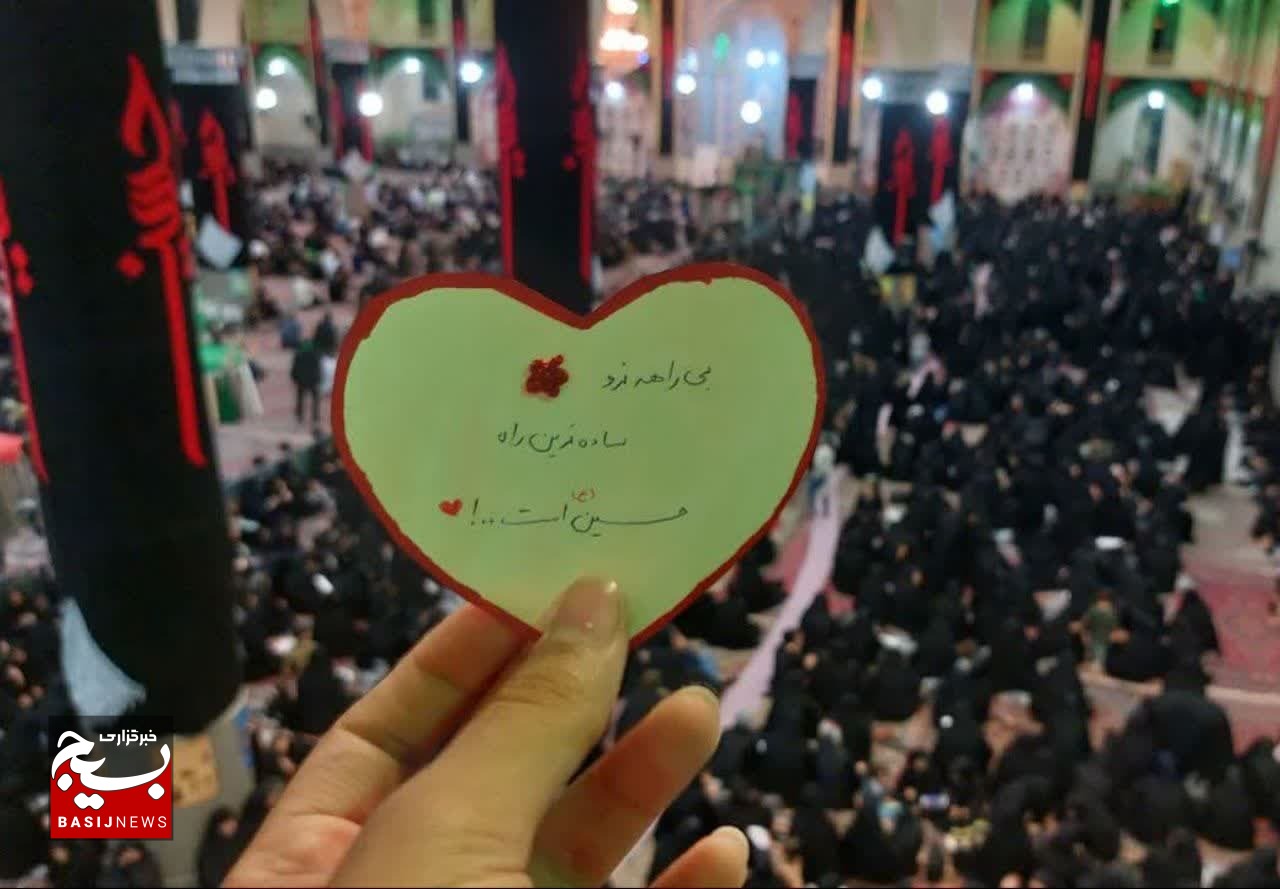 بی راهه نرو
ساده ترین راه
حسین (ع) است..!
خبرگزاری
بسیج
BASIJNEWS